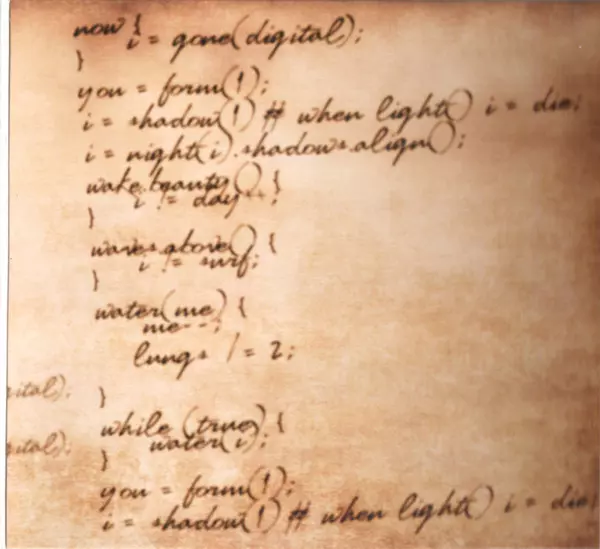 now {
i = gone(digital);
}
you = form(1);
i = shadow(1) # when light() i = die;
i = night(i).shadows.align();
wake.beauty() {
i != day--;
}
waves.above() {
i != surf;
}
water(me) {
me--;
lungs /= 2;
gital);
}
while (true) {
gital);
water(i);
}
you = form(1);
i = shadow(1) # when light() i = die;